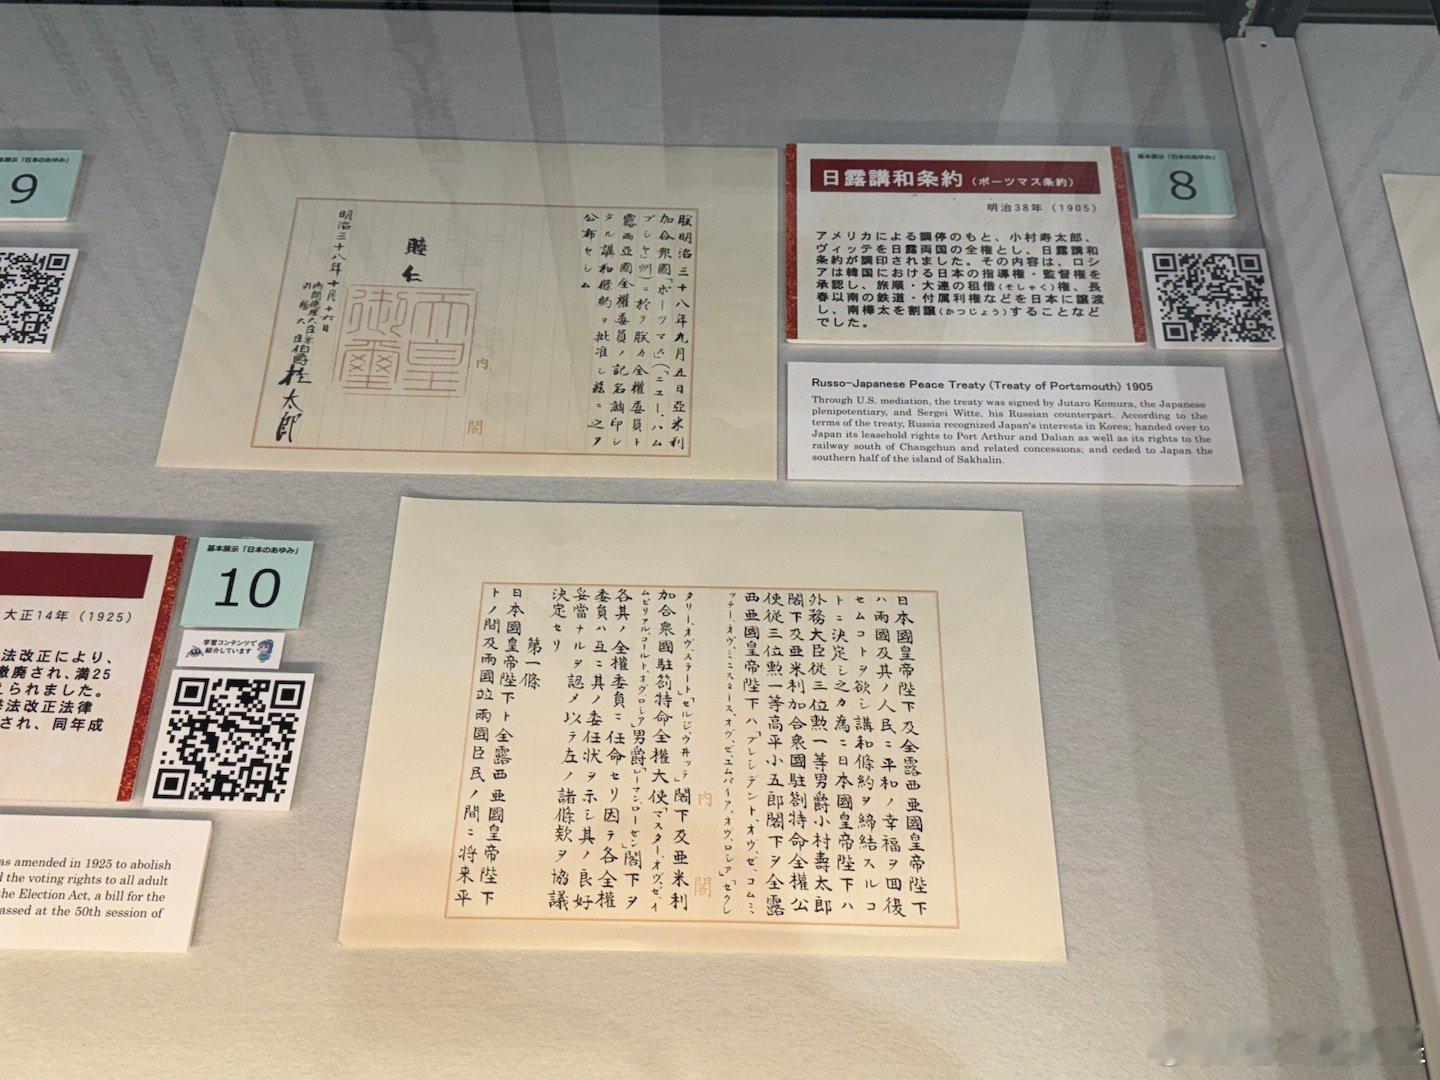 基本展示「日本のあゆみ」
9
朕明治三十八年九月五日亞米利
加合衆國「ポーツマス」(「ニュー、ハム
プシャ」州)ニ於テ朕カ全權委員ト
露西亞國全權委員ノ記名調印シ
タル講和條約ヲ批准シ茲ニ之ヲ
公布セシム
睦仁
天皇御璽
明治三十八年十月十六日
内閣總理大臣兼
外務大臣伯爵桂太郎
内閣
日露講和条約(ポーツマス条約)
明治38年(1905)
アメリカによる調停のもと、小村寿太郎、
ヴィッテを日露両国の全権とし、日露講和
条約が調印されました。その内容は、ロシ
アは韓国における日本の指導権・監督権を
承認し、旅順・大連の租借(そしゃく)権、長
春以南の鉄道・付属利権などを日本に譲渡
し、南樺太を割譲(かつじょう)することなど
でした。
基本展示「日本のあゆみ」
8
Russo-Japanese Peace Treaty (Treaty of Portsmouth) 1905
Through U.S. mediation, the treaty was signed by Jutaro Komura, the Japanese
plenipotentiary, and Sergei Witte, his Russian counterpart. According to the
terms of the treaty, Russia recognized Japan's interests in Korea; handed over to
Japan its leasehold rights to Port Arthur and Dalian as well as its rights to the
railway south of Changchun and related concessions; and ceded to Japan the
southern half of the island of Sakhalin.
日本國皇帝陛下及全露西亞國皇帝陛下
ハ兩國及其ノ人民ニ平和ノ幸福ヲ囘復
セムコトヲ欲シ講和條約ヲ締結スルコ
トニ決定シ之カ為ニ日本國皇帝陛下ハ
外務大臣從三位勲一等男爵小村壽太郎
閣下及亞米利加合衆國駐箚特命全權公
使從三位勲一等高平小五郎閣下ヲ全露
西亞國皇帝陛下ハ「プレシデント、オヴ、ゼ、コムミ
ッチー、オヴ、ミニスタース、オヴ、ゼ、エムパイア、オヴ、ロシア」「セクレ
内閣
タリー、オヴ、ステート」「セルジ、ウヰッテ」閣下及亞米利
加合衆國駐箚特命全權大使「マスター、オヴ、ゼ、イ
ムピリアル、コールト、オヴ、ロシア」男爵「ローマン、ローゼン」閣下ヲ
各其ノ全權委員ニ任命セリ因テ各全權
委員ハ互ニ其ノ委任状ヲ示シ其ノ良好
妥當ナルヲ認メ以テ左ノ諸條款ヲ協議
決定セリ
第一條
日本國皇帝陛下ト全露西亞國皇帝陛下
トノ間及兩國竝兩國臣民ノ間ニ將来平
基本展示「日本のあゆみ」
10
学習コンテンツで
紹介しています
大正14年(1925)
法改正により、
撤廃され、満25
えられました。
挙法改正法律
され、同年成
as amended in 1925 to abolish
d the voting rights to all adult
the Election Act, a bill for the
assed at the 50th session of